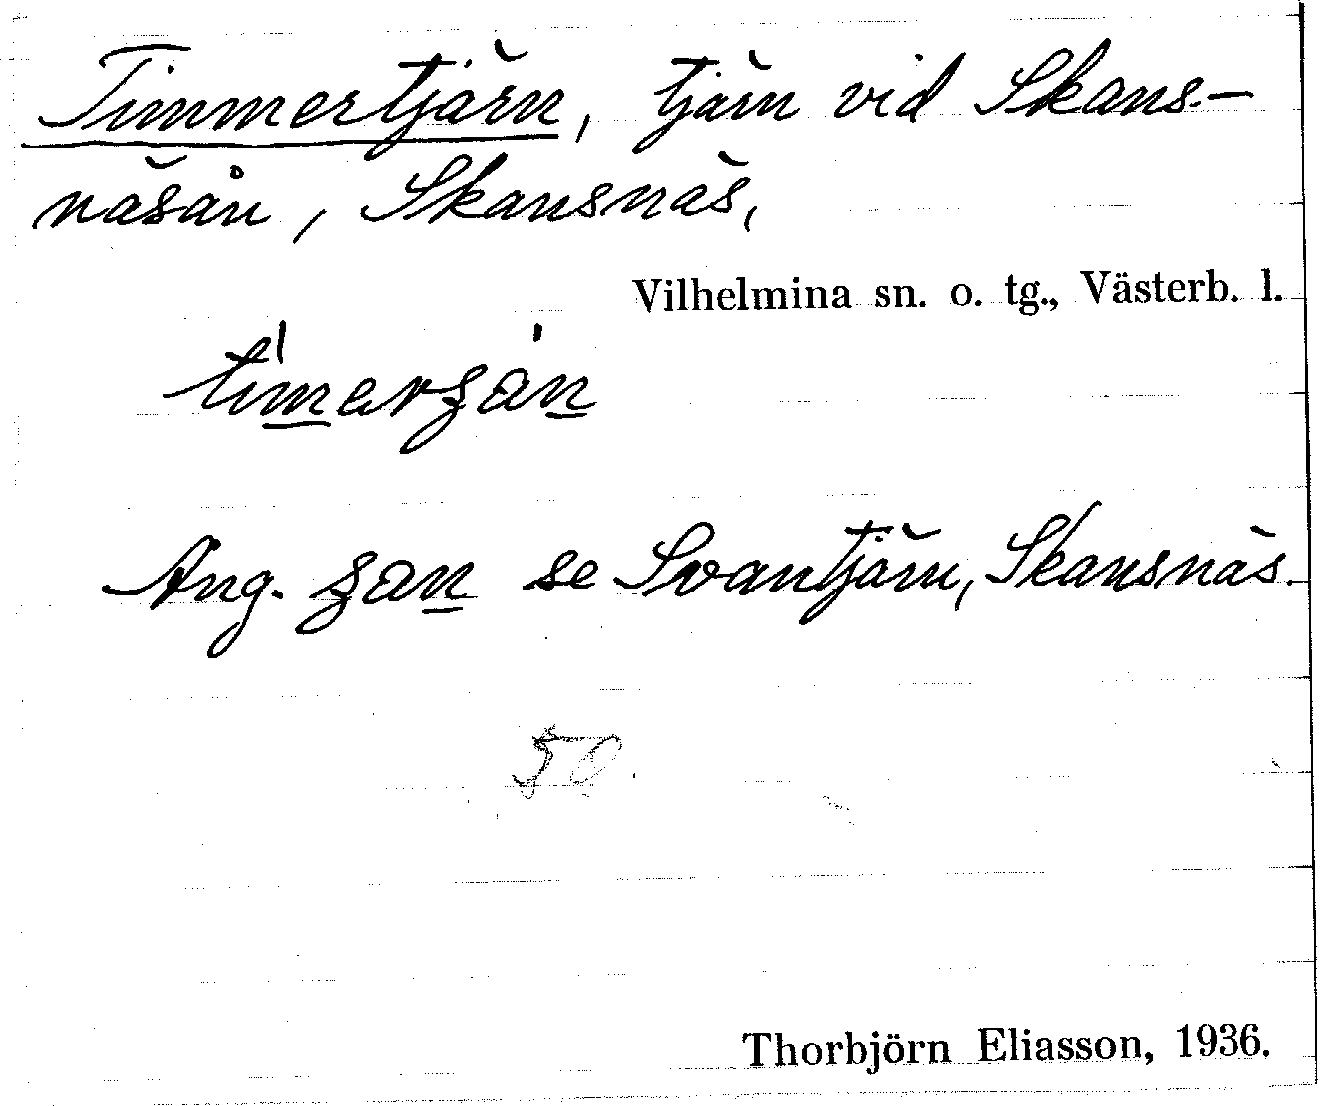 Timmertjärn, tjärn vid Skans-
näsån, Skansnäs,
Vilhelmina sn. o. tg., Västerb. l.
Ang. se Svantjärn, Skansnäs.
50.
Thorbjörn Eliasson, 1936.